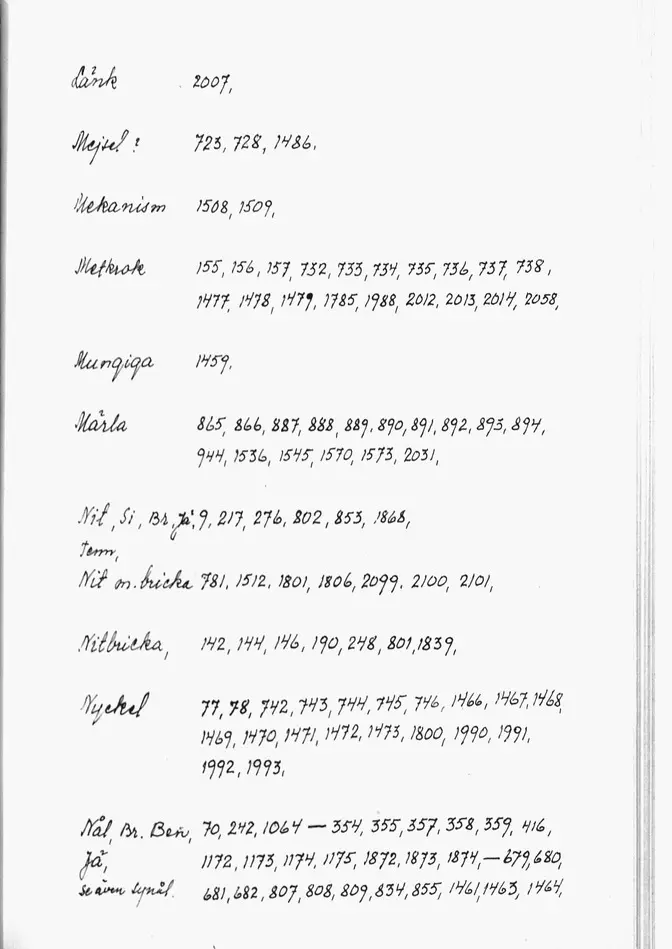 Länk 2007,
Mejsel? 723, 728, 1486,
Mekanism 1508, 1509,
Metkrok 155, 156, 157, 732, 733, 734, 735, 736, 737, 738,
1477, 1478, 1479, 1785, 1988, 2012, 2013, 2014, 2058,
Mungiga 1459.
Märla 865, 866, 887, 888, 889, 890, 891, 892, 893, 894,
944, 1536, 1545, 1570, 1573, 2031,
Nit, Si, Br, Jä, 9, 217, 276, 802, 853, 1868,
Tenn,
Nit m. bricka 781, 1512, 1801, 1806, 2099. 2100, 2101,
Nitbricka, 142, 144, 146, 190, 248, 801, 1839,
Nyckel 77, 78, 742, 743, 744, 745, 746, 1466, 1467, 1468,
1469, 1470, 1471, 1472, 1473, 1800, 1990, 1991,
1992, 1993,
Nål, Br. Ben, 70, 242, 1064 — 354, 355, 357, 358, 359, 416,
Jä, 1172, 1173, 1174, 1175, 1872, 1873, 1874, — 679, 680,
se även synål. 681, 682, 807, 808, 809, 834, 855, 1461, 1463, 1464,